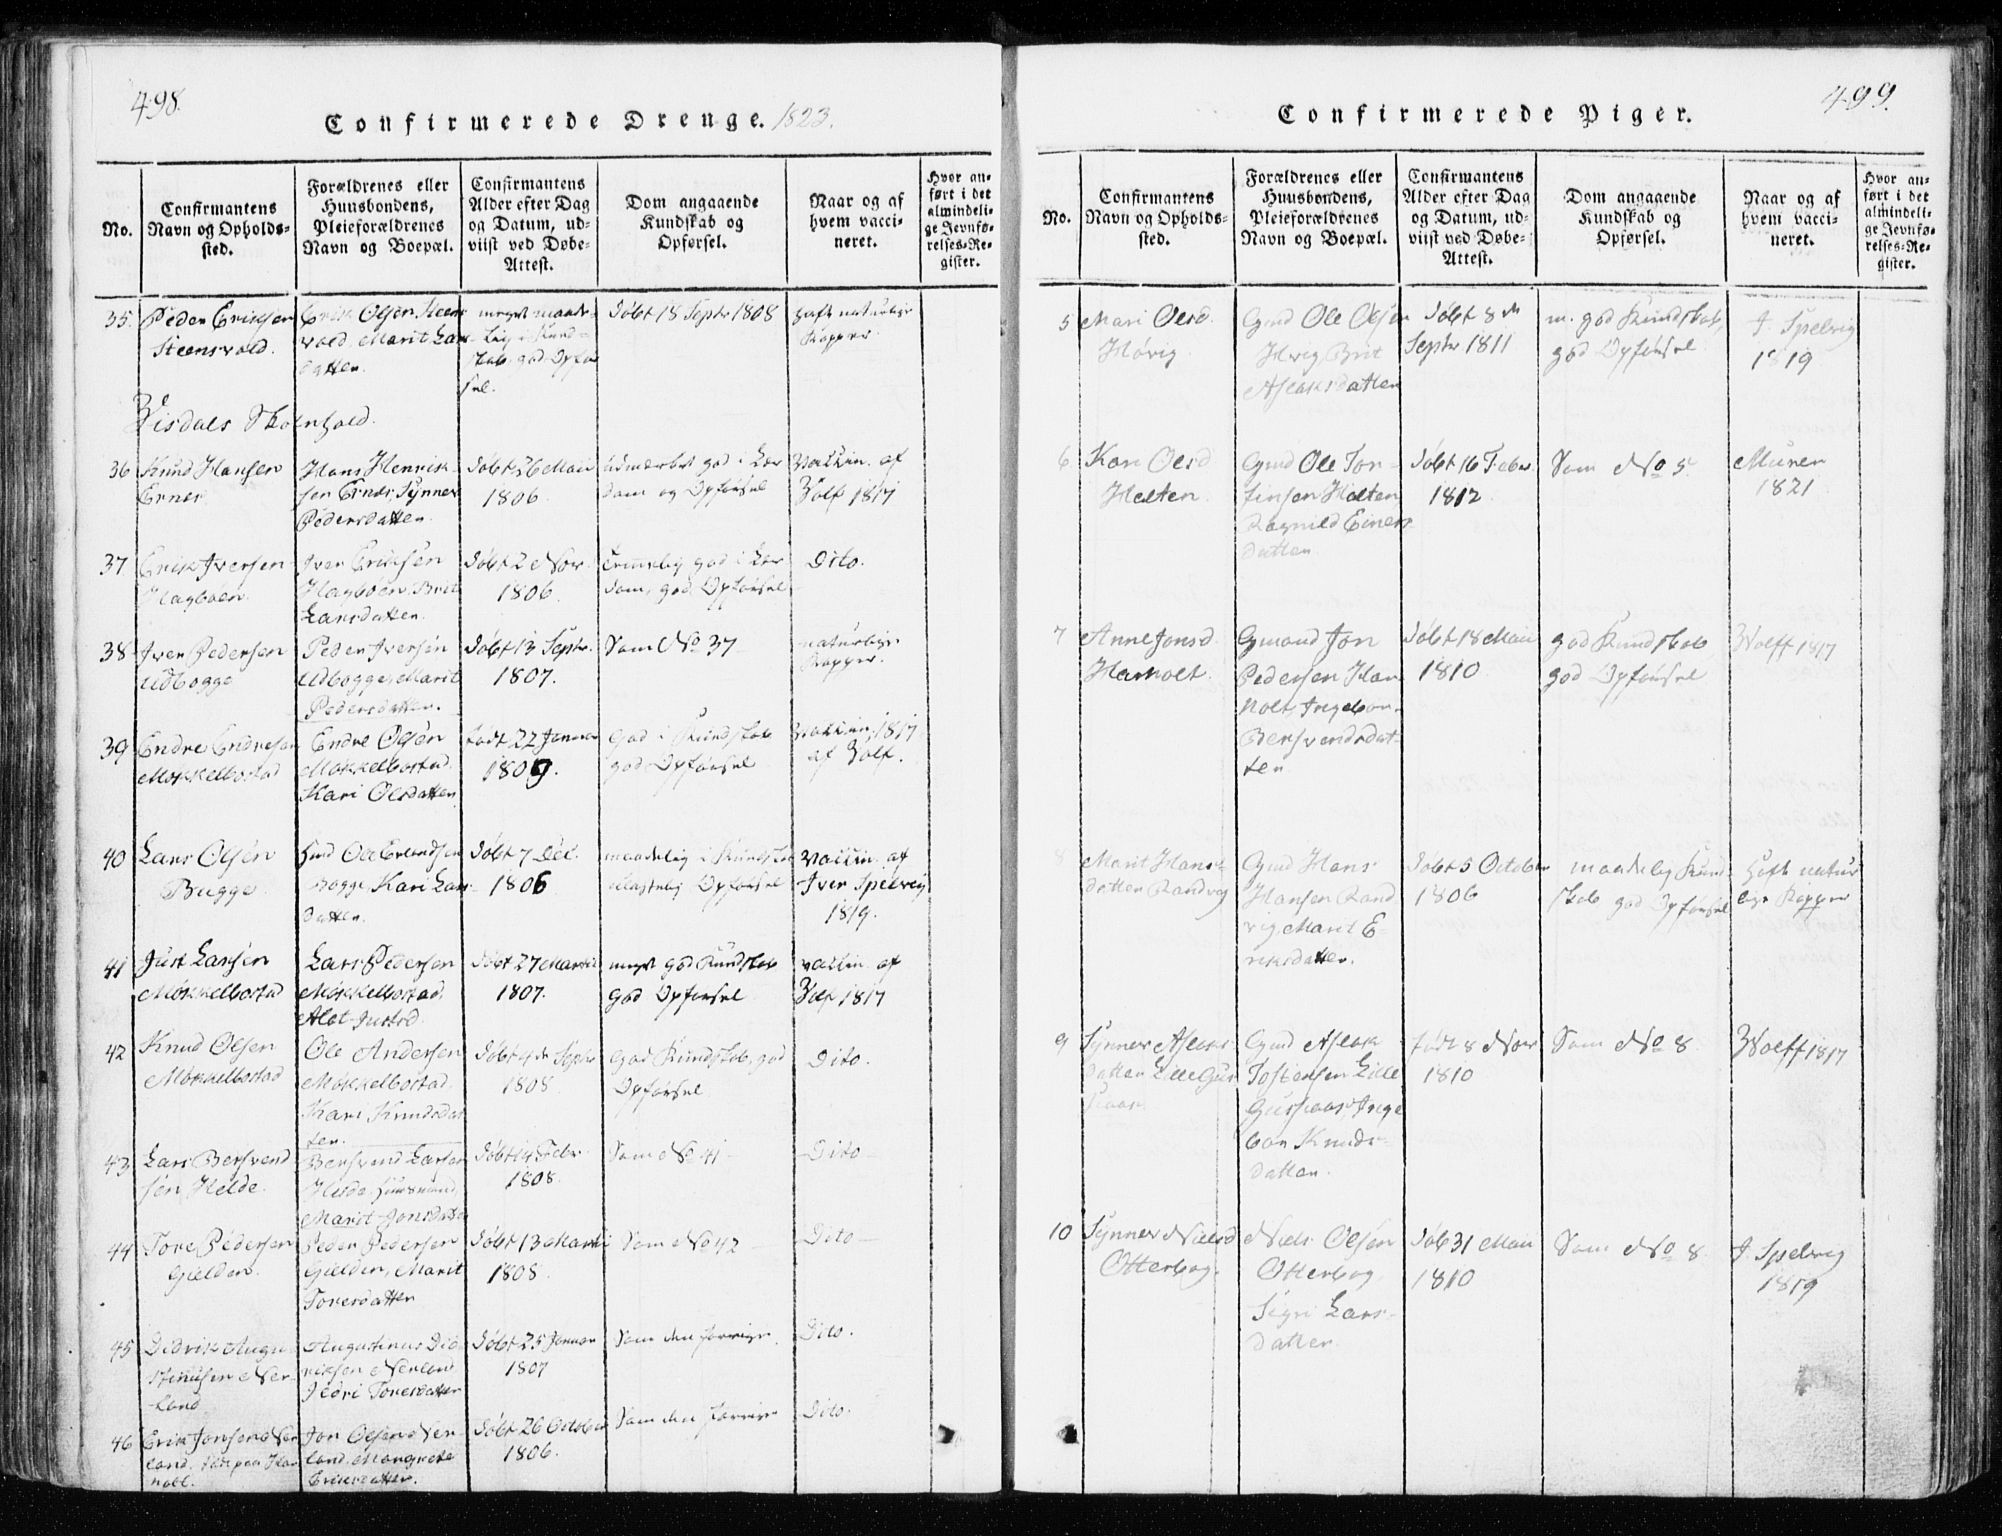 498.
Confirmerede Drenge. 1823.
No.
Confirmantens Navn og Opholds-
sted.
Forældrenes eller
Huusbondens,
Pleieforældrenes
Navn og Boepæl.
Confirmantens
Alder efter Dag
og Datum, ud-
viist ved Døbe-
Attest.
Dom angaaende
Kundskab og
Opførsel.
Naar og af
hvem vacci-
neret.
Hvor an-
ført i det
almindeli-
ge Jevnfø-
relses-Re-
gister.
35 Peder Eriksen
Steensvold.
Erik Olsen Steens
vold, Marit Lars
datter.
meget maade-
lig i Kund-
skab, god Opfør
sel.
Døbt 18 Septr 1808
haft naturlige
Kopper.
Visdals Skolehold.
36 Knud Hansen
Ernes
Hans Henrik
sen Ernes, Synnev
Pedersdatter.
Døbt 26 Maii
1806.
udmærket god i Lær
dom og Opførsel
Vaccin. af
Wolf 1817
37 Erik Iversen
Hagboen.
Iver Eriksen
Hagboen, Brit
Larsdatter.
Døbt 2 Nov.
1806.
temmelig god i Lær
dom, god Opførsel
Dito.
38 Iver Pedersen
Udbogge
Peder Iversen
Udbogge, Marit
Pedersdatter.
Døbt 13 Septr.
1807.
Som No 37
naturlige
Kopper.
39 Endre Endresen
Mokkelbostad
Endre Olsen
Mokkelbostad.
Kari Olsdatter
født 22 Januar
1809.
God i Kundskab
god Opførsel
Vaccin. 1817
af Wolf.
40 Lars Olsen
Bugge.
Hmd Ole Erlandsen
Bogge, Kari Lars
datter.
Døbt 7 Dec.
1806
maadelig i Kundskab
Opførsel
Vaccin. af
Iver Spelvig
1819.
41 Just Larsen
Mokkelbostad
Lars Pedersen
Mokkelbostad.
Alet Justsd.
Døbt 27 Martii
1807.
meget god Kundskab
god Opførsel
vaccin. af
Wolf 1817
42 Knud Olsen
Mokkelbostad
Ole Andersen
Mokkelbostad.
Kari Knudsdat
ter.
Døbt 4de Septr
1808
God Kundskab, god
Opførsel
Dito.
43 Lars Bersvend
sen Helde.
Bersvend Larsen
Helde Huusmand,
Marit Jonsdatter
Døbt 14 Febr.
1808.
Som No 41
Dito
44 Tore Pedersen
Gielden.
Peder Pedersen
Gielden, Marit
Toresdatter
Døbt 13 Martii
1808.
Som No 42
Dito
45 Didrik Augu
stinusen Ner-
land
Augustinus Did
riksen Nerland
Toresdatter
Døbt 25 Januar
1807
Som den forrige
Dito.
46 Erik Jonsen Ner
land.
Jon Olsen Ner-
land, Margrete
Eriksdatter.
Døbt 26 October
1806.
Som den forrige
Dito.
499.
Confirmerede Piger.
No.
Confirmantens
Navn og Opholds-
sted.
Forældrenes eller
Huusbondens,
Pleieforældrenes
Navn og Boepæl.
Confirmantens
Alder efter Dag
og Datum, ud-
viist ved Døbe-
Attest.
Dom angaaende
Kundskab og
Opførsel.
Naar og af
hvem vacci-
neret.
Hvor an-
ført i det
almindeli-
ge Jevnfø-
relses-Re-
gister.
5 Mari Olsd.
Høvig
Gmd Ole Olsen
Hvig, Brit
Aslaksdatter
Døbt 8de
Septr 1811
m. god Kundskab,
god Opførsel
I. Spelvig
1819
6 Kari Olsd
Holten.
Gmd Ole Tor-
finsen Holten
Ragnild Einers
datter.
Døbt 16 Febr.
1812
Som No 5
Murer
1821
7 Anne Jonsd.
Harnolt.
Gmand Jon
Pedersen Har
nolt, Ingebor-
Bersvendsdat-
ter
Døbt 18 Maii
1810
god Kundskab
god Opførsel
Wolff 1817
8 Marit Hans-
datter Randvig
Gmd Hans
Hansen Rand
vig, Marit E-
riksdatter.
Døbt 5 October
1806
maadelig Kund-
skab god Opførsel
Haft natur
lige Kopper
9 Synnev Aslaks
datter Lille Gus
iaas.
Gmd Aslak
Tostensen Lille
Gusiaas, Inge
bor Knuds-
datter.
født 8 Nov
1810
Som No 8
Wolff 1817
10 Synnev Nielsd
Otterbog.
Niels Olsen
Otterbog
Sigri Lars-
datter.
Døb 31 Maii
1810
Som No 8
I. Spelvig
1819